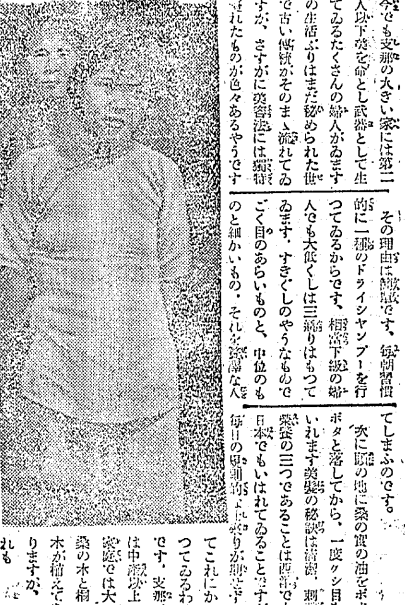 今でも支那の大きい家には第二
人以下美を命とし武器として生
てゐるたくさんの婦人がゐます
の生活ぶりはまだ秘められた世
で古い傳統がそのまゝ流れてゐ
すが、さすがに美容法には獨特
れたものが色々あるやうです
その理由は簡單です。毎朝習慣
的に一種のドライシヤンプーを行
つてゐるからです、相當下級の婦
人でも大低くしは三通りはもつて
ゐます、すきぐしのやうなもので
ごく目のあらいものと、中位のも
のと細かいもの、それを
てしまふのです。
次に頭の地に桑の實の油をポ
ポタと落してから、一度クシ目
いれます美髮の秘訣は清潔、刺
榮養の三つであることは西洋で
日本でもいはれてゐることです
毎日の規則的な
てこれにか
つてゐるわ
です、支那
は中流以上
家庭では大
桑の木と桐
木が植ゑて
りますが、
れも